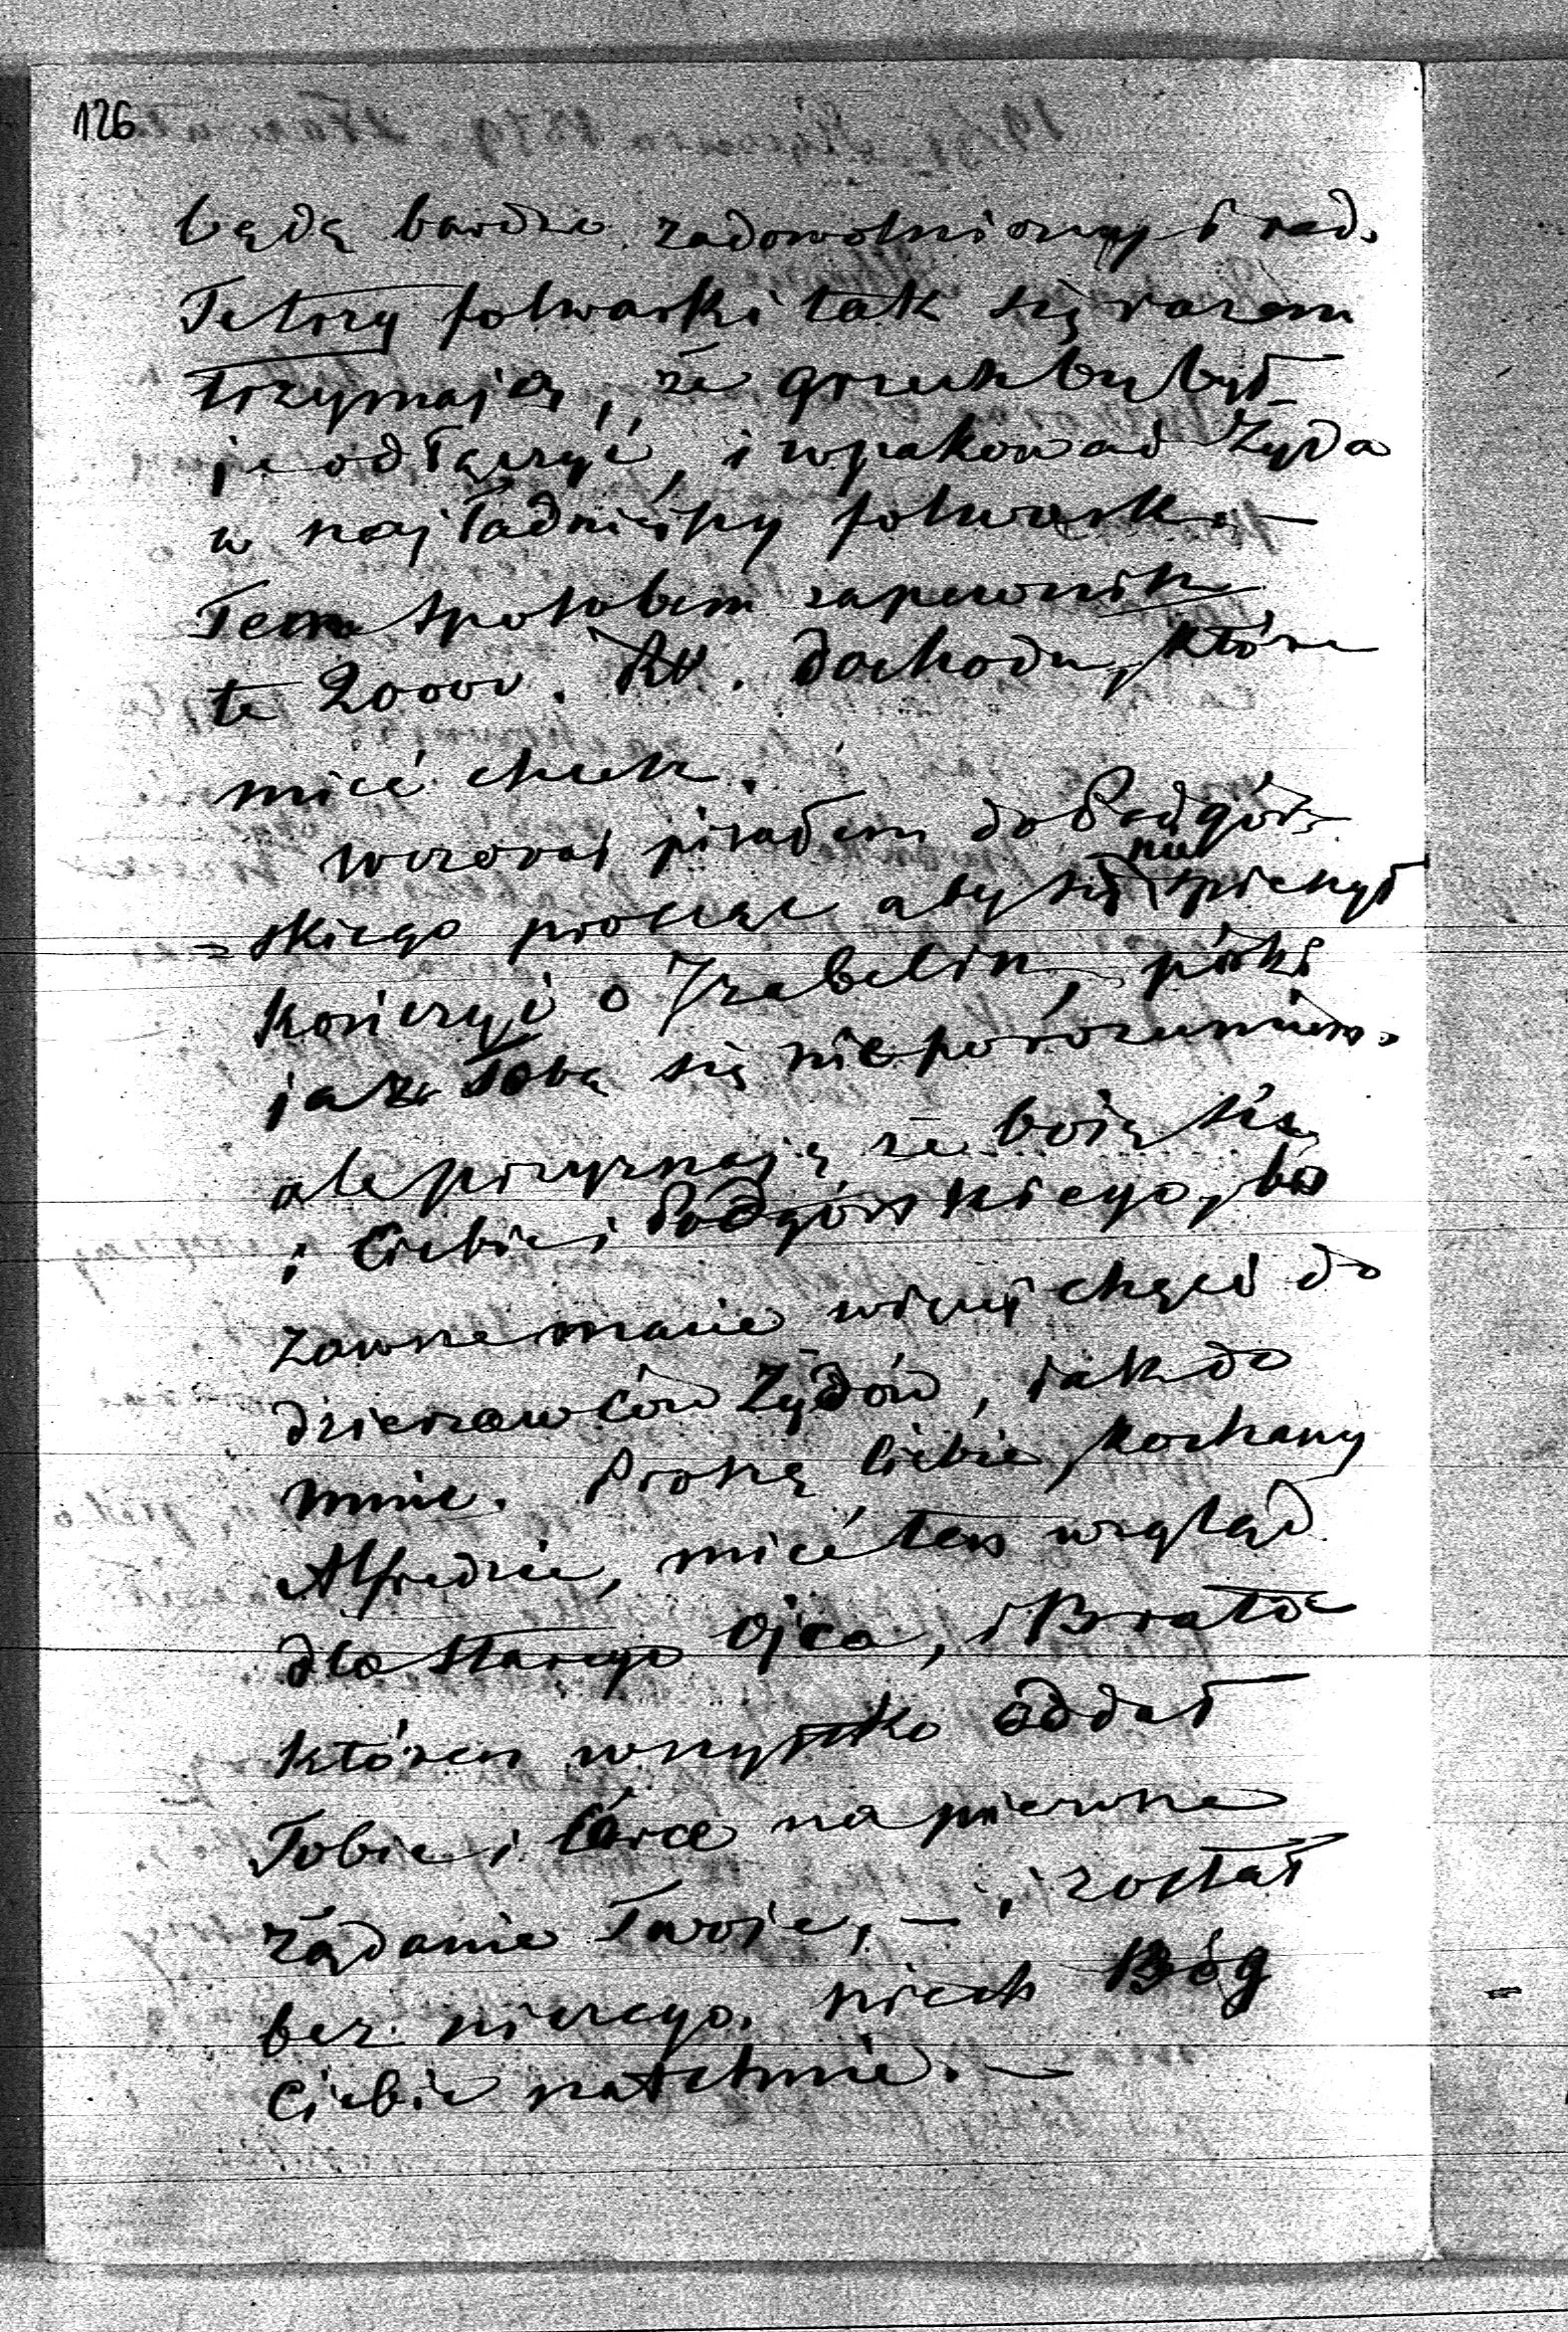 126
będę bardzo zadowolniony i rad.
Te trzy folwarki tak się razem
trzymają, że grzech by był
je odłączyć, i wpakować Żyda
w najładniejszy folwark. —
Tem sposobem zapewnisz
te 20000. Rs. dochodu, które
mieć chcesz.
Wczoraj pisałem do Podgór-
=skiego prosząc aby się nie spieszył
kończyć o Izabelin, póki
ja z Tobą się nie porozumiem.
ale przyznaję że boję się
i Ciebie i Podgórskiego, bo
zawsze macie więcej chęci do
dzierżawców Żydów, jak do
mnie. Proszę Ciebie, kochany
Alfredzie, mieć ten wzgląd
dla starego Ojca, i Brata
któren wszystko oddał
Tobie i Córce na pierwsze
żądanie Twoje, — i został
bez niczego. niech Bóg
Ciebie natchnie. —